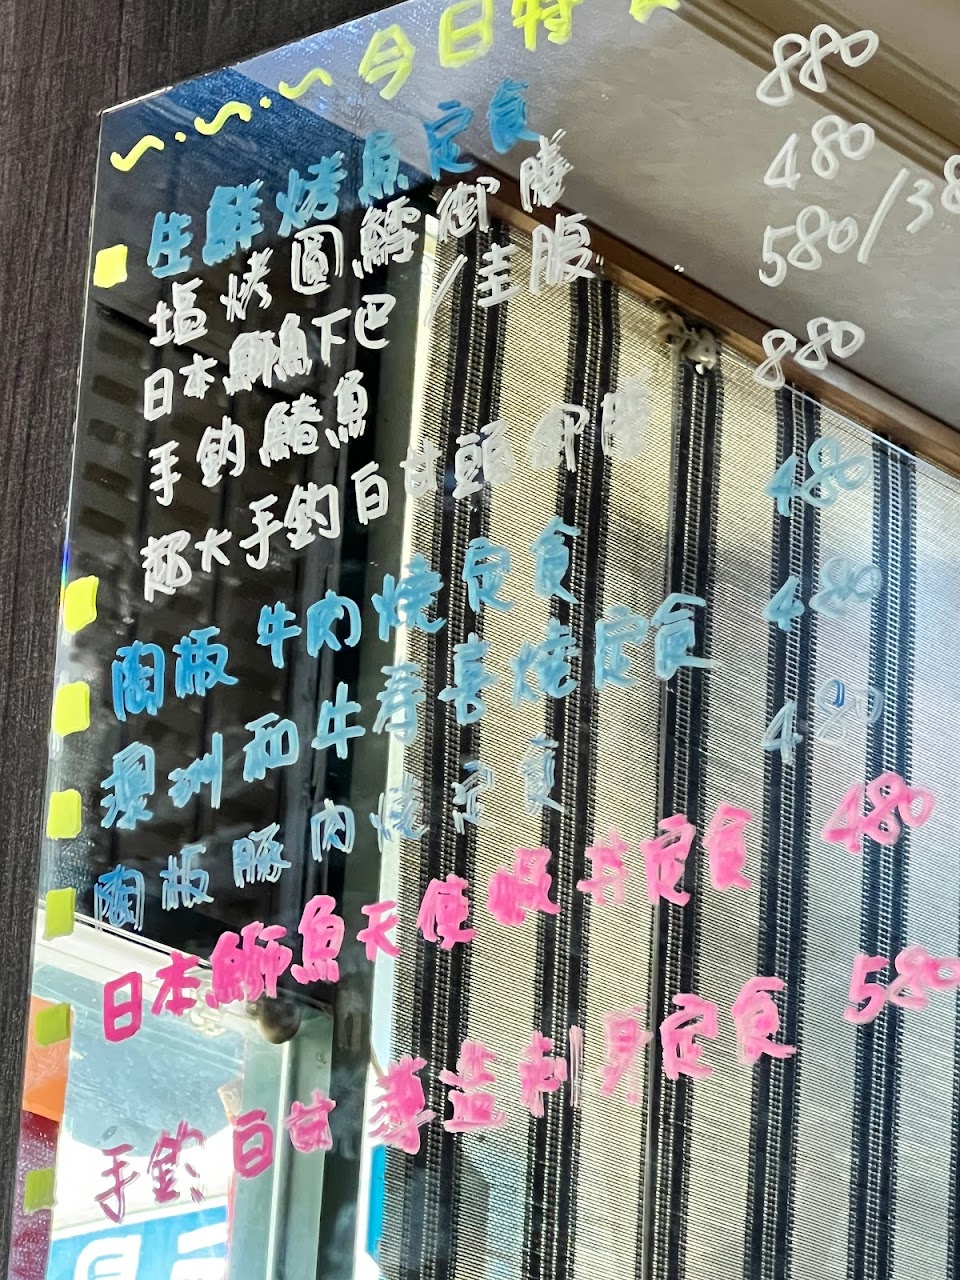 今日特食
生鮮烤魚定食
塩烤圓鱈御膳 880
日本鰤魚下巴/圭腹 480
手釣鯥魚 580/38
超大手釣白甘頭御膳 880
陶板牛肉燒定食 480
澳洲和牛壽喜燒定食 480
陶板豚肉燒定食 480
日本鰤魚天使蝦丼定食 480
手釣白甘薄造刺身定食 580